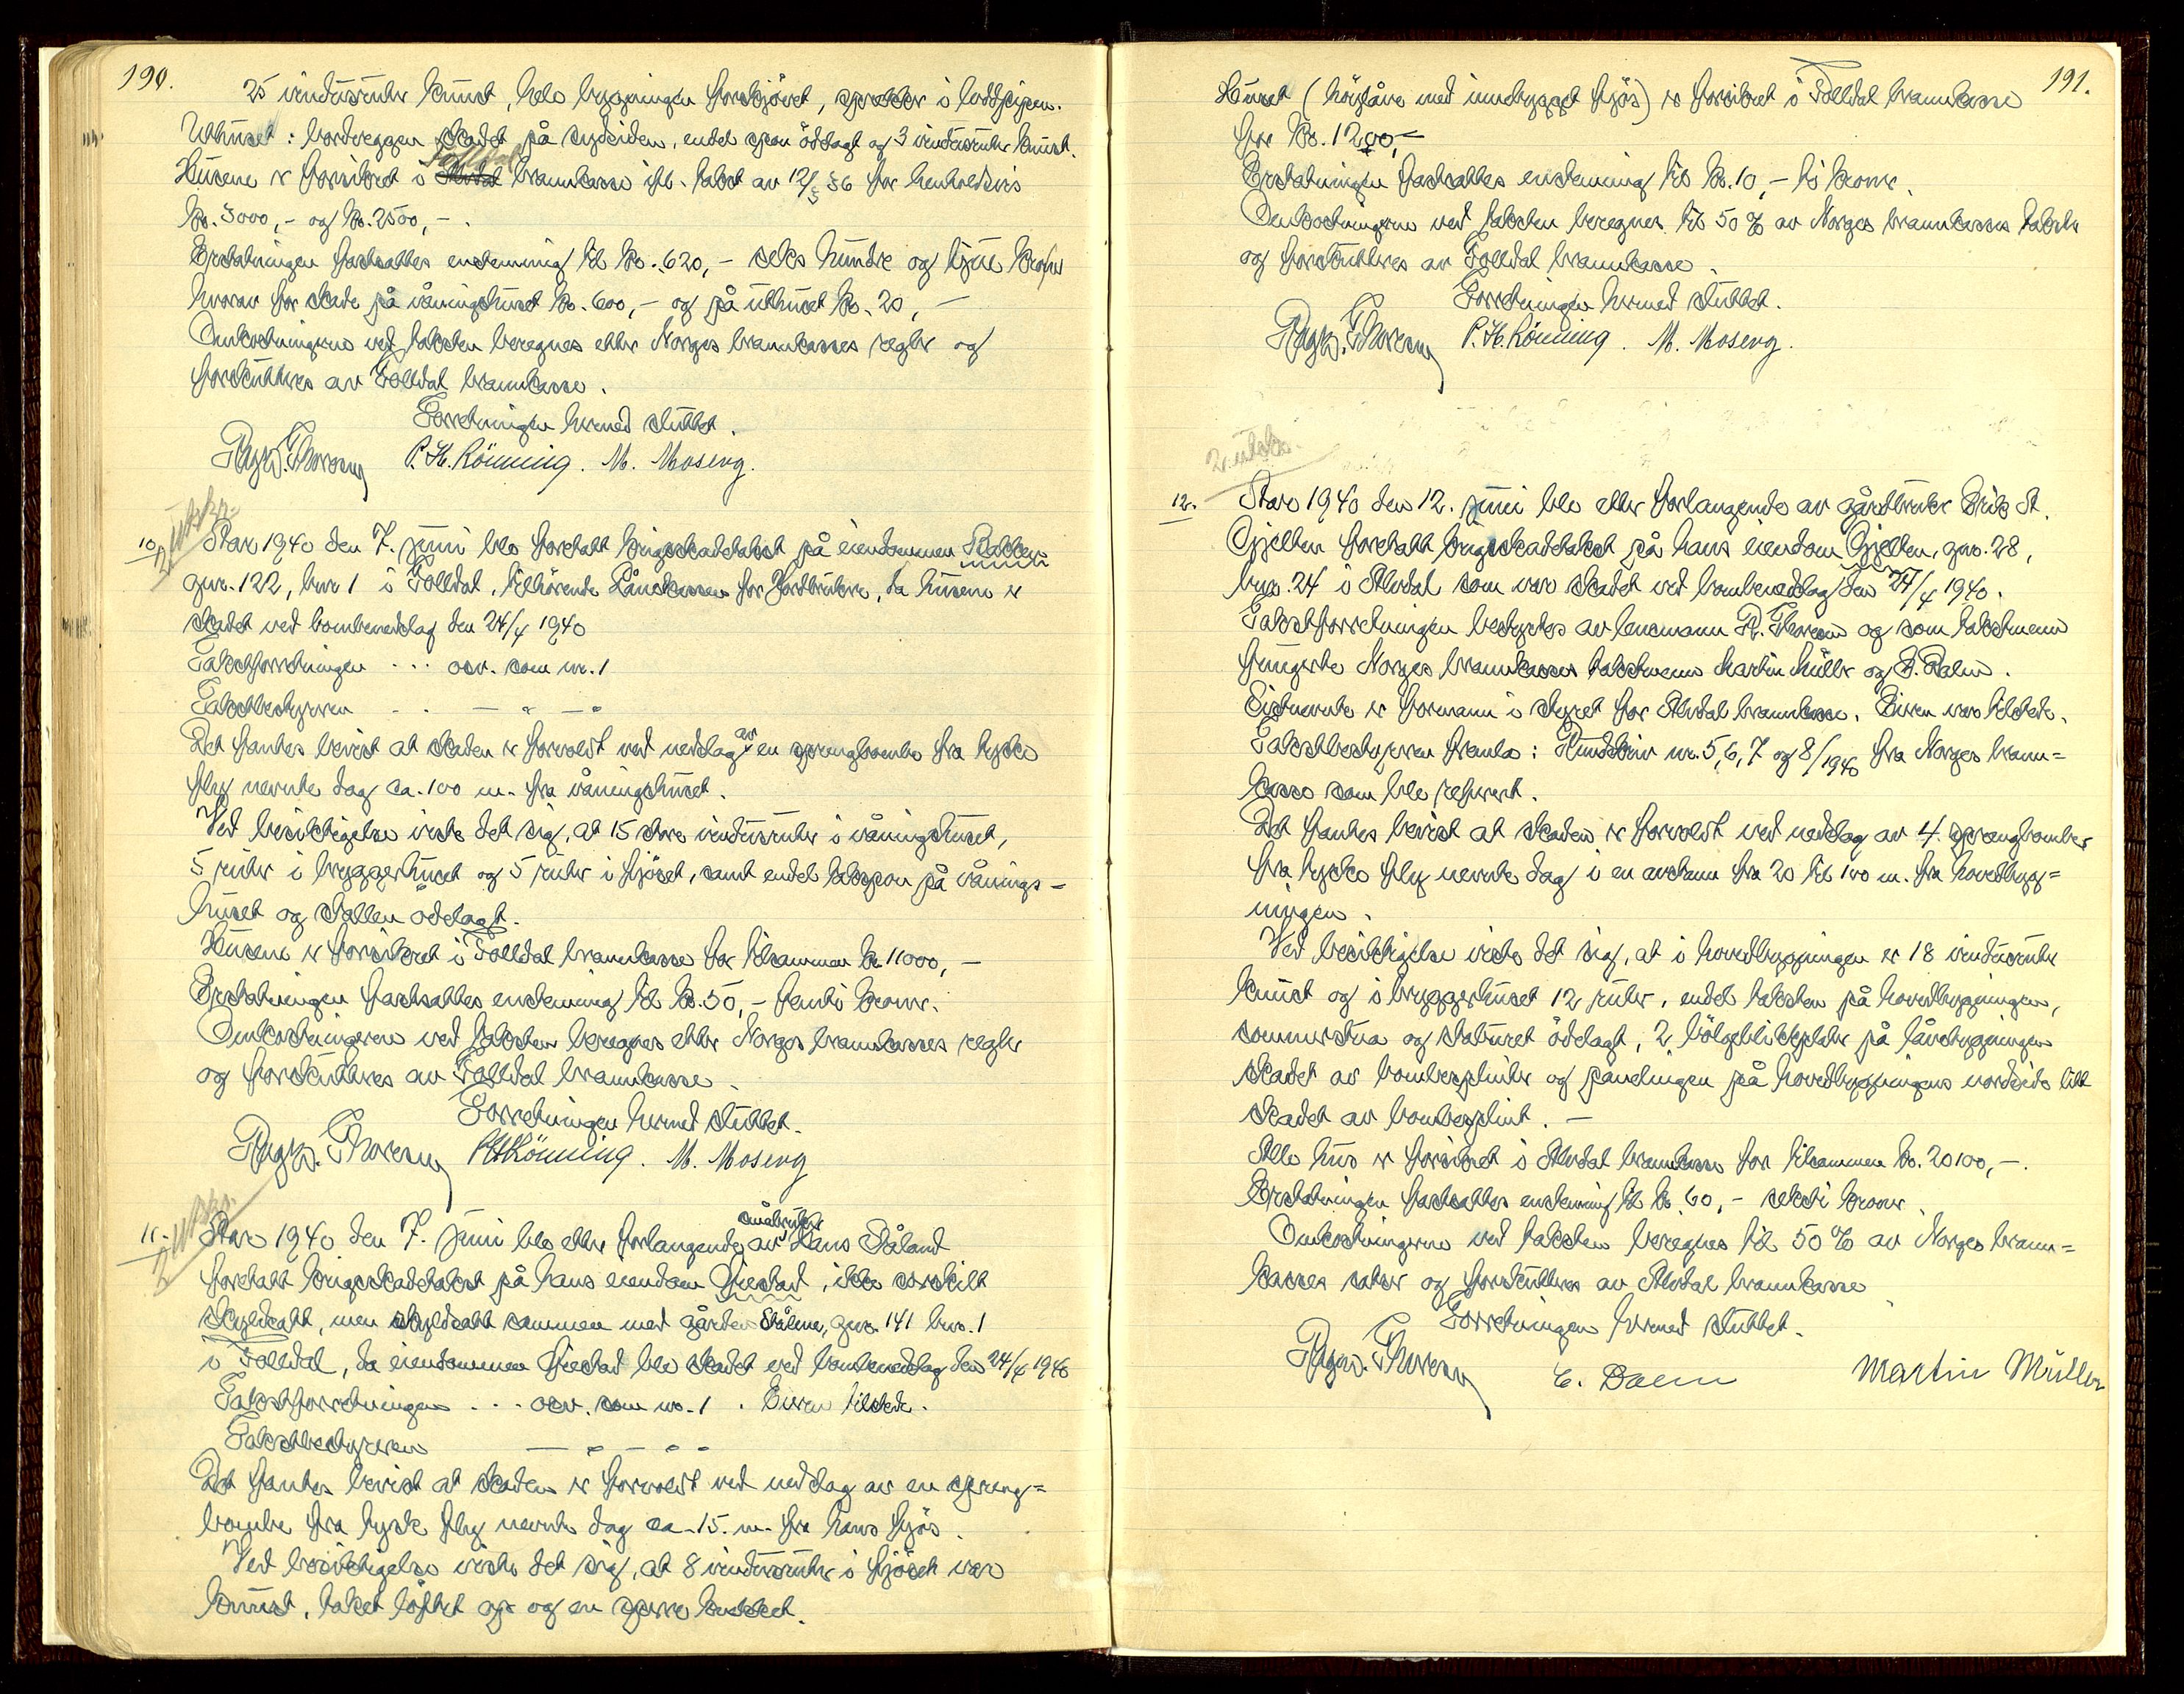 190.
25 vindusruter knust, hele bygningen forskjøvet, sprekker i loftspipen.
Uthuset: bordveggen skadet på sydsiden, endel spon ödelagt og 3 vindusruter knust.
Folldal
Husene er forsikret i Alvdal brannkasse ifl. takst av 12/5 36 for henholdsvis
kr. 3000,- og kr. 2500,-.
Erstatningen fastsattes enstemmig til kr. 620,- seks hundre og tjue kroner
hvorav for skade på våningshuset kr. 600,- og på uthuset kr. 20,-
Omkostningene ved taksten beregnes etter Norges brannkasses regler og
forskutteres av Folldal brannkasse.
Forretningen hermed sluttet.
Ragn. Thoresen P. H. Rönning. M. Moseng.
2 utskr.
10. År 1940 den 7. juni ble foretatt krigsskadetakst på eiendommen Bakken
gnr. 122, bnr 1 i Folldal, tilhörende Lånekassen for Jordbrukere, da husene er
skadet ved bombenedslag den 24/4 1940
Takstforretningen ... osv. som nr. 1
Takstbestyreren - - — " — "
Det fantes bevist at skaden er forvoldt ved nedslag av en sprengbombe fra tyske
fly nevnte dag ca. 100 m. fra våningshuset.
Ved besiktigelse viste det sig, at 15 store vindusruter i våningshuset,
5 ruter i bryggerhuset og 5 ruter i fjöset, samt endel takspon på vånings-
huset og stallen ödelagt.
Husene er forsikret i Folldal brannkasse for tilsammen kr 11000,-
Erstatningen fastsattes enstemmig til kr. 50,- femti kroner.
Omkostningene ved taksten beregnes etter Norges brannkasses regler
og forskutteres av Folldal brannkasse.
Forretningen hermed sluttet.
Ragn. Thoresen P H Rönning. M. Moseng
2 utskr.
småbruker
11. År 1940 den 7. juni ble etter forlangende av Hans Såland
foretatt krigsskadetakst på hans eiendom Grestad, ikke særskilt
skyldsatt, men skyldsatt sammen med gården Stålme, gnr. 141 bnr. 1
i Folldal, da eiendommen Grestad ble skadet ved bombenedslag den 24/4 1940
Takstforretningen ... osv. som nr. 1. Eieren tilstede.
Takstbestyreren — " — " "
Det fantes bevist at skaden er forvoldt ved nedslag av en spreng=
bombe fra tysk fly nevnte dag ca. 15. m. fra hans fjös.
Ved besiktigelse viste det sig, at 8 vindusruter i fjöset var
knust, taket löftet op og en sperre knekket.
191.
Huset (höylåve med innebygget fjös) er forsikret i Folldal brannkasse
for kr. 1200,-
Erstatningen fastsattes enstemmig til kr. 10,- ti kroner.
Omkostningene ved taksten beregnes til 50 % av Norges brannkasses takster
og forskutteres av Folldal brannkasse.
Forretningen hermed sluttet.
Ragn. Thoresen P. H. Rönning. M. Moseng.
2. utskr.
12. År 1940 den 12. juni ble etter forlangende av gårdbruker Erik St.
Gjelten foretatt krigsskadetakst på hans eiendom Gjelten, gnr. 28,
bnr. 24 i Alvdal som var skadet ved bombenedslag den 24/4 1940.
Takstforretningen bestyrtes av lensmann R. Thoresen og som takstmenn
fungerte Norges brannkasses takstmenn Martin Müller og E. Dalen.
Sistnevnte er formann i styret for Alvdal brannkasse. Eieren var tilstede.
Takstbestyreren fremla: Rundskriv nr. 5, 6, 7 og 8/1940 fra Norges brann=
kasse som ble referert.
Det fantes bevist at skaden er forvoldt ved nedslag av 4. sprengbomber
fra tyske fly nevnte dag i en avstann fra 20 til 100 m. fra hovedbygg=
ningen.
Ved besiktigelse viste det sig, at i hovedbygningen er 18 vindusruter
knust og i bryggerhuset 12 ruter, endel taksten på hovedbygningen,
sommerstua og stabburet ödelagt, 2 bölgeblikkplater på låvebygningen
skadet av bombesplinter og panelingen på hovedbygningens nordside litt
skadet av bombesplint. -
Alle hus er forsikret i Alvdal brannkasse for tilsammen kr. 20100,-.
Erstatningen fastsattes enstemmig til kr. 60,- seksti kroner.
Omkostningene ved taksten beregnes til 50 % av Norges brann=
kasses satser og forskutteres av Alvdal brannkasse.
Forretningen hermed sluttet.
Ragn. Thoresen E. Dalen Martin Müller